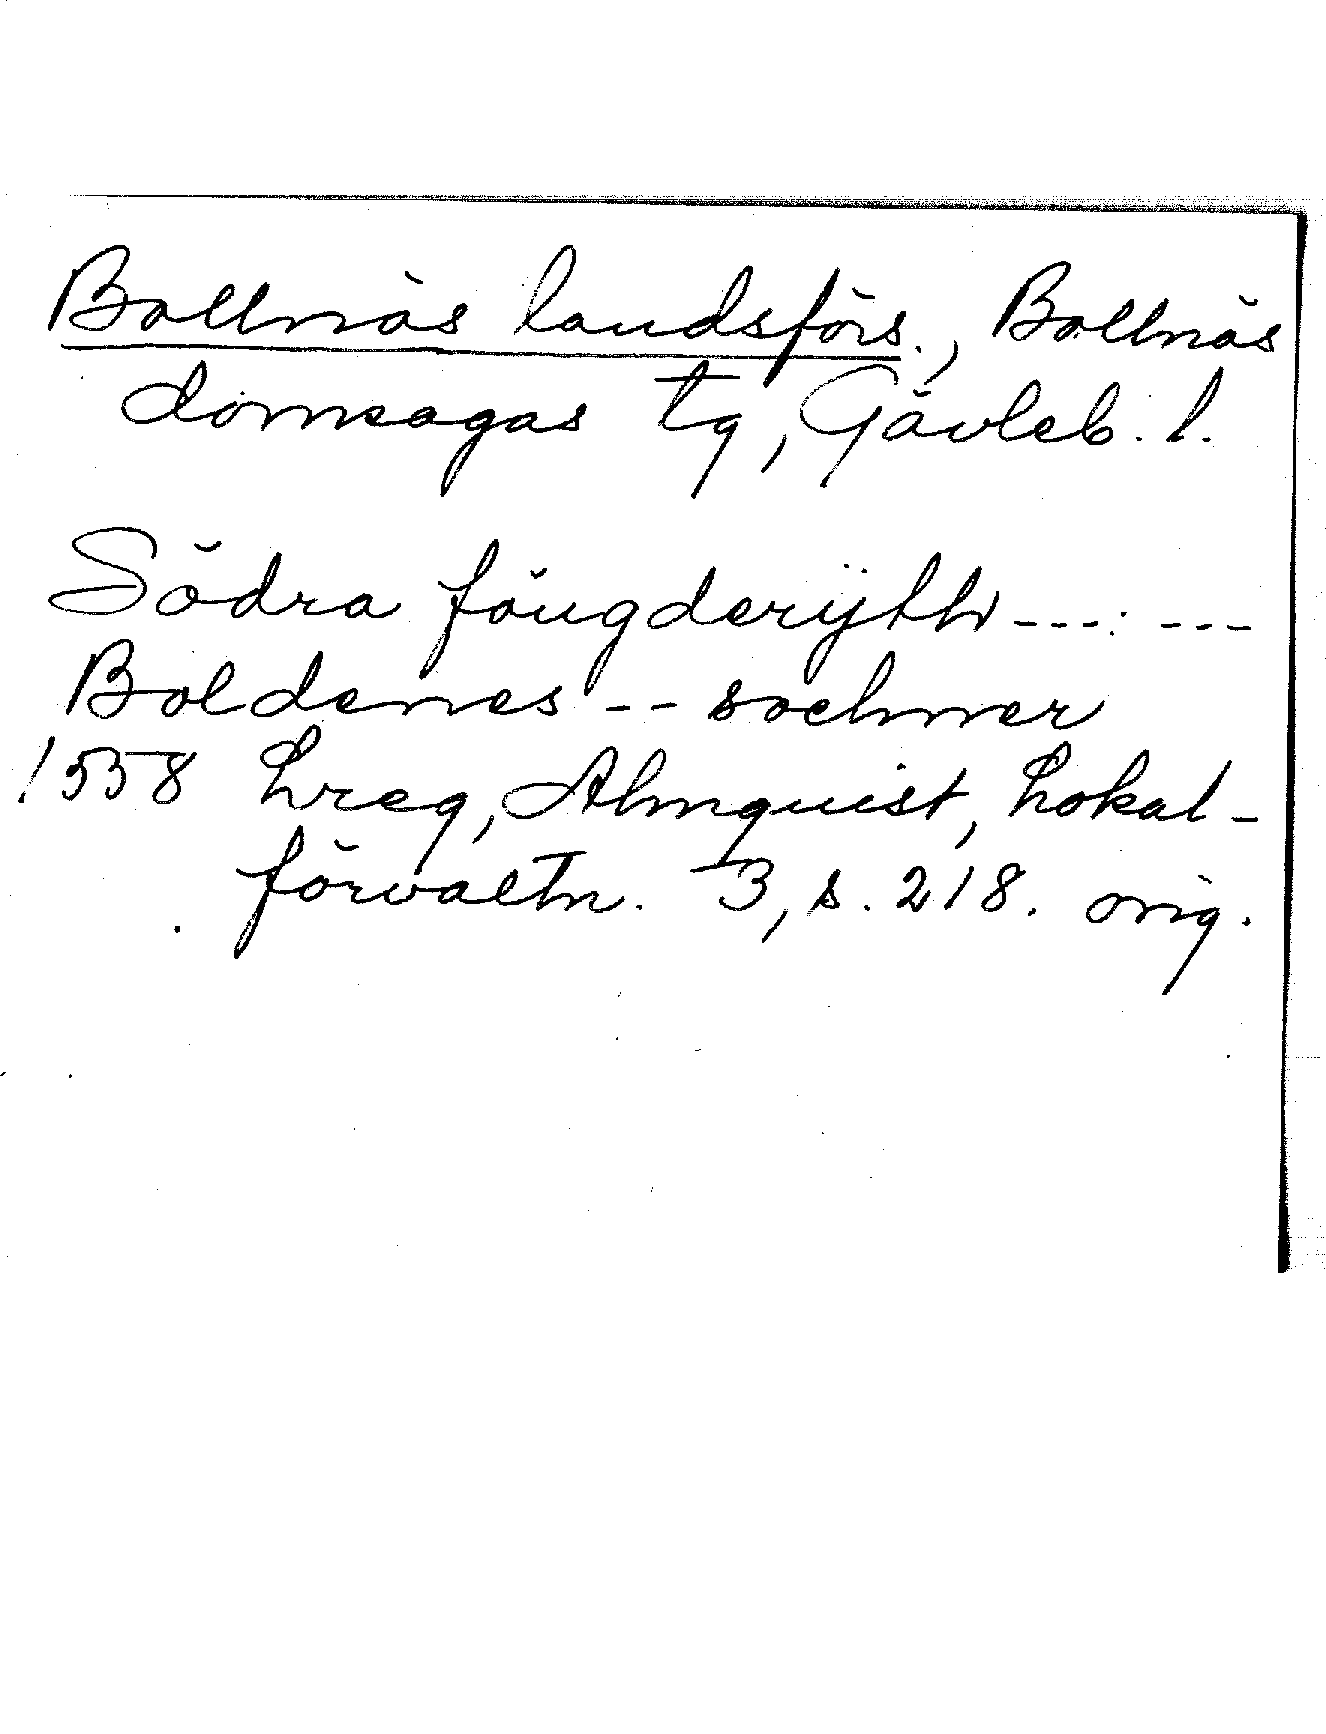 Bollnäs landsförs., Bollnäs
domsagas tg, Gävleb. l.
Södra föugderijth --- ---
Boldenes -- sochner
1558 Lreg, Almquist, Lokal-
förvaltn. 3, s. 218. orig.